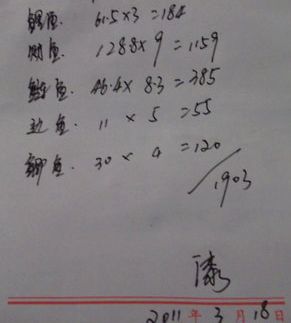 鱼. 61.5×3 =184
鱼. 128.8×9 =1159
鱼. 46.4×8.3 =385
边鱼. 11 × 5 =55
鲫鱼. 30 × 4 =120
1903
2011年3月18日